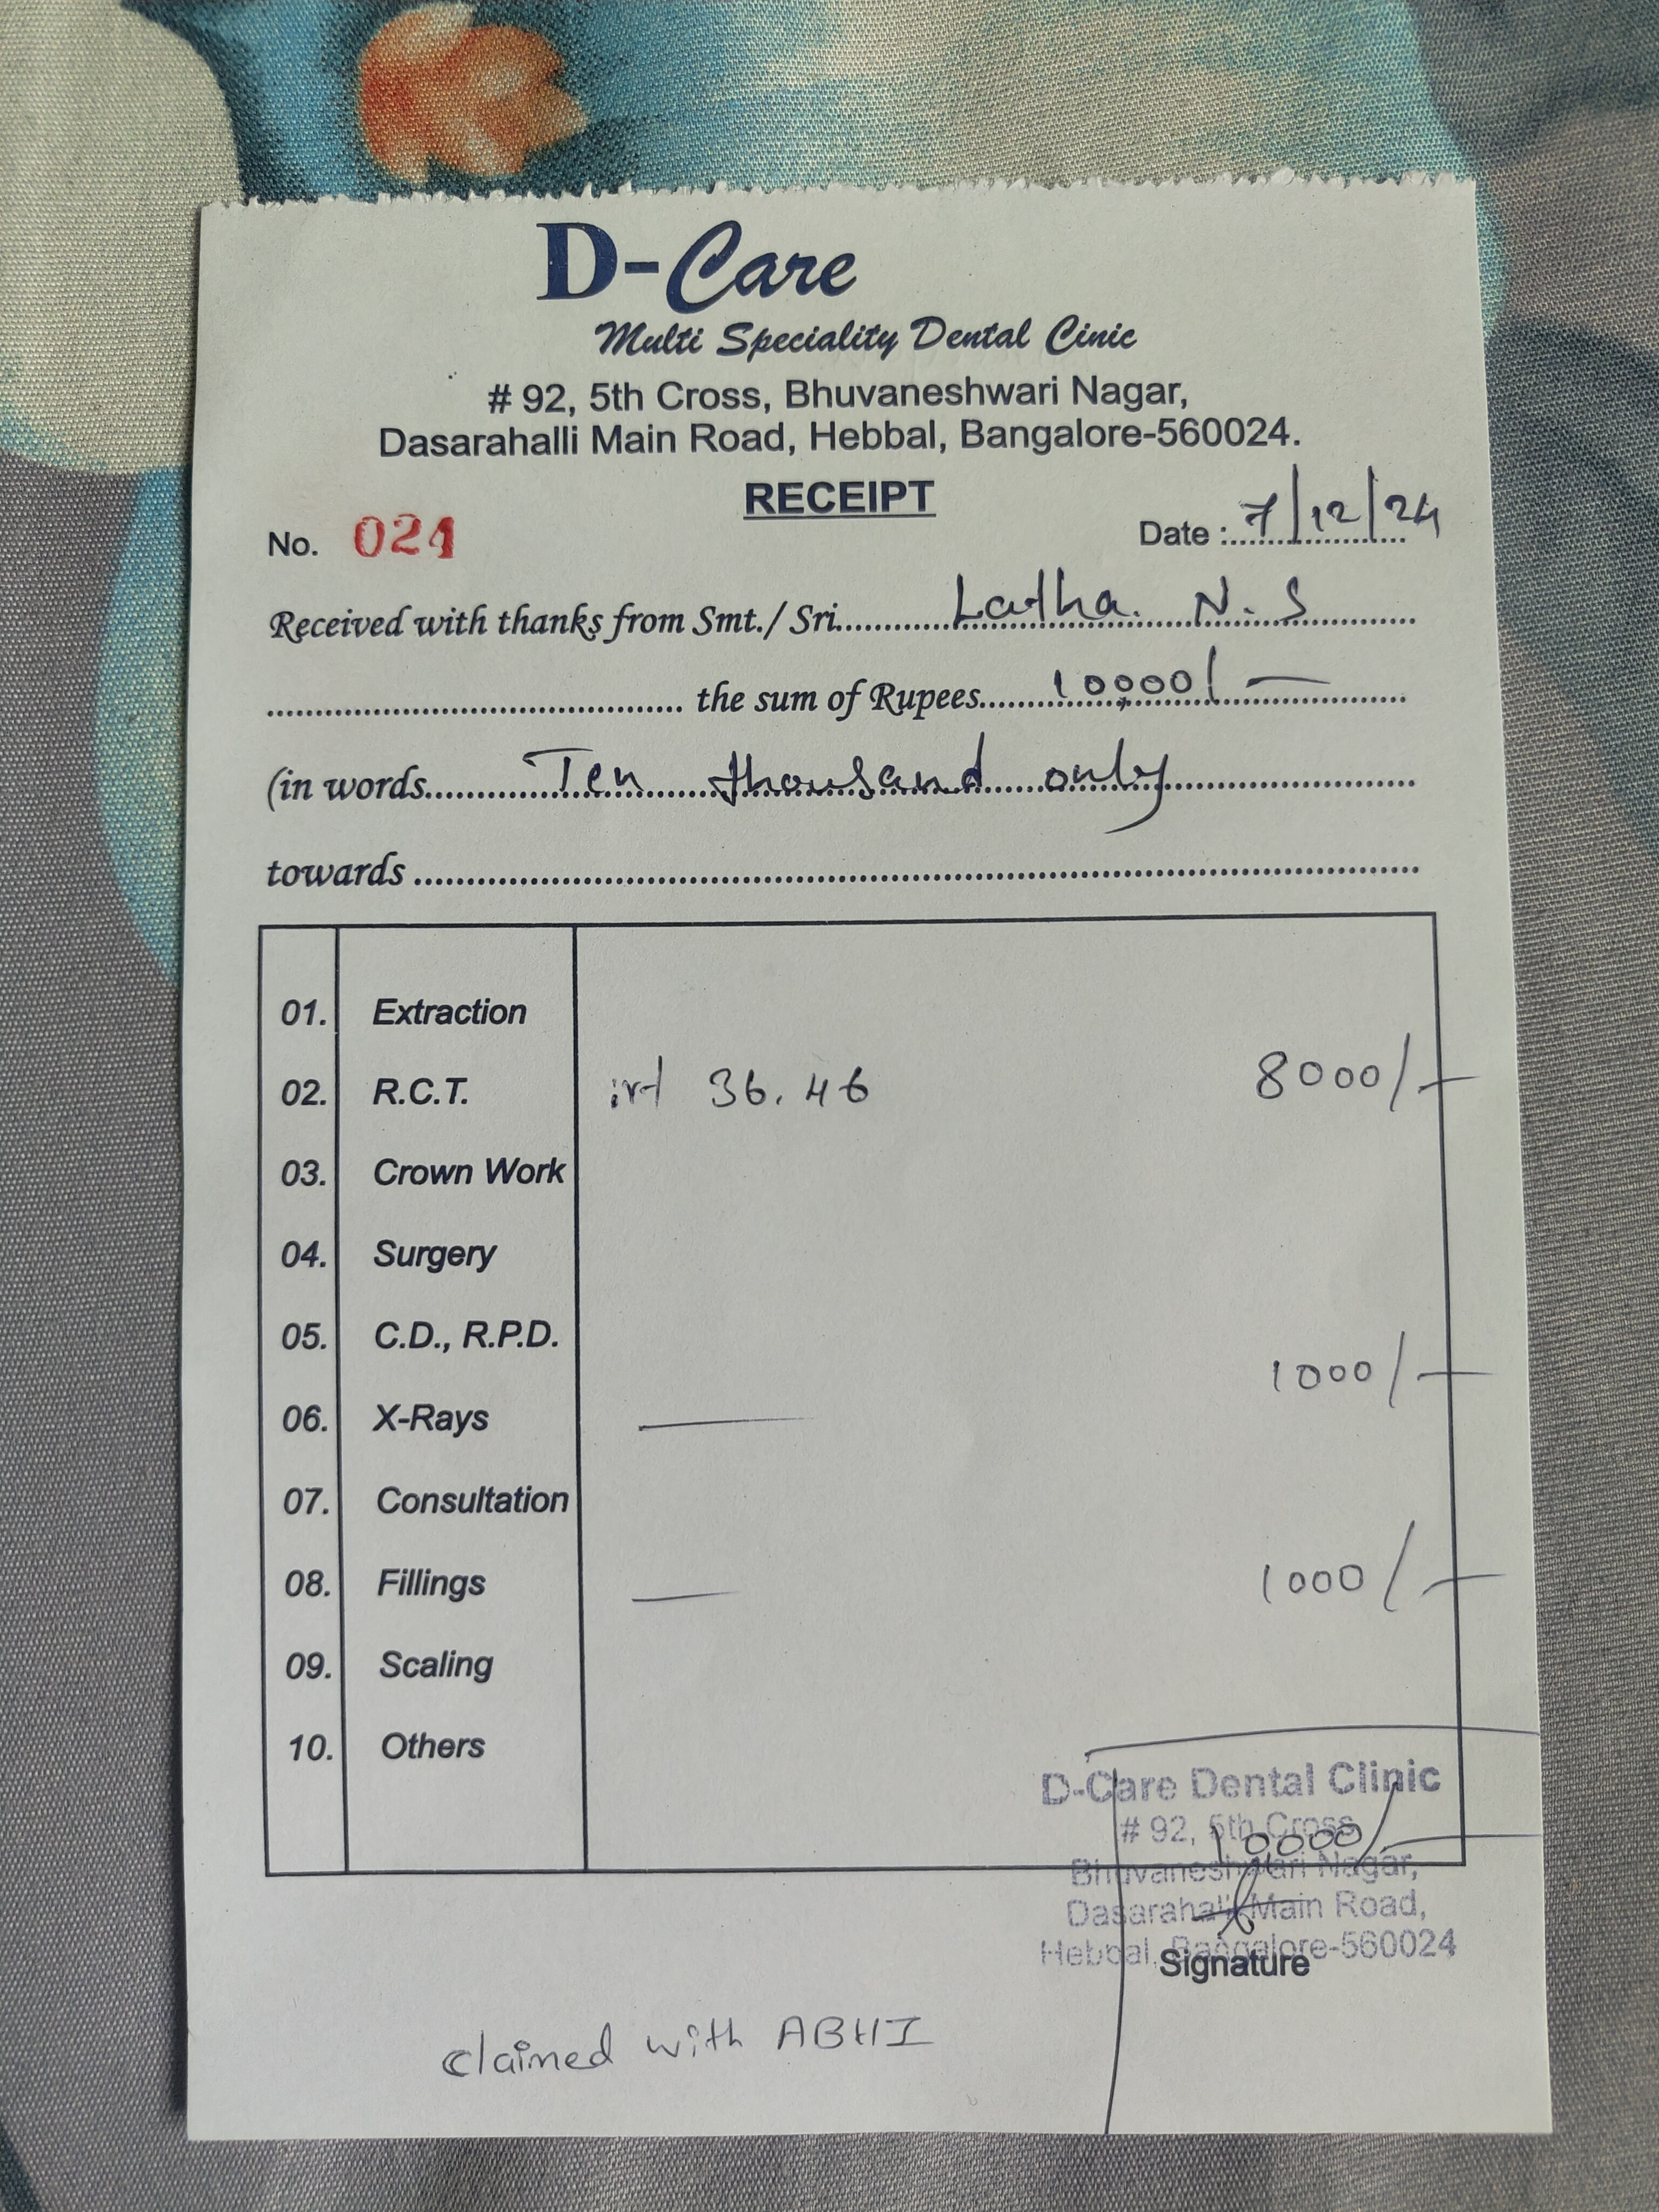 D-Care
Multi Speciality Dental Cinic
# 92, 5th Cross, Bhuvaneshwari Nagar,
Dasarahalli Main Road, Hebbal, Bangalore-560024.
RECEIPT
No. 021 Date : 7/12/24
Received with thanks from Smt./ Sri. Latha. N. S
the sum of Rupees 10,000/-
(in words Ten thousand only
towards
01. Extraction
02. R.C.T. irt 36. 46 8000/-
03. Crown Work
04. Surgery
05. C.D., R.P.D.
06. X-Rays — 1000/-
07. Consultation
08. Fillings — 1000/-
09. Scaling
10. Others
D-Care Dental Clinic
# 92, 5th Cross
10000/-
Bhuvaneshwari Nagar,
Dasarahalli Main Road,
Hebbal, Bangalore-560024
Signature
claimed with ABHI